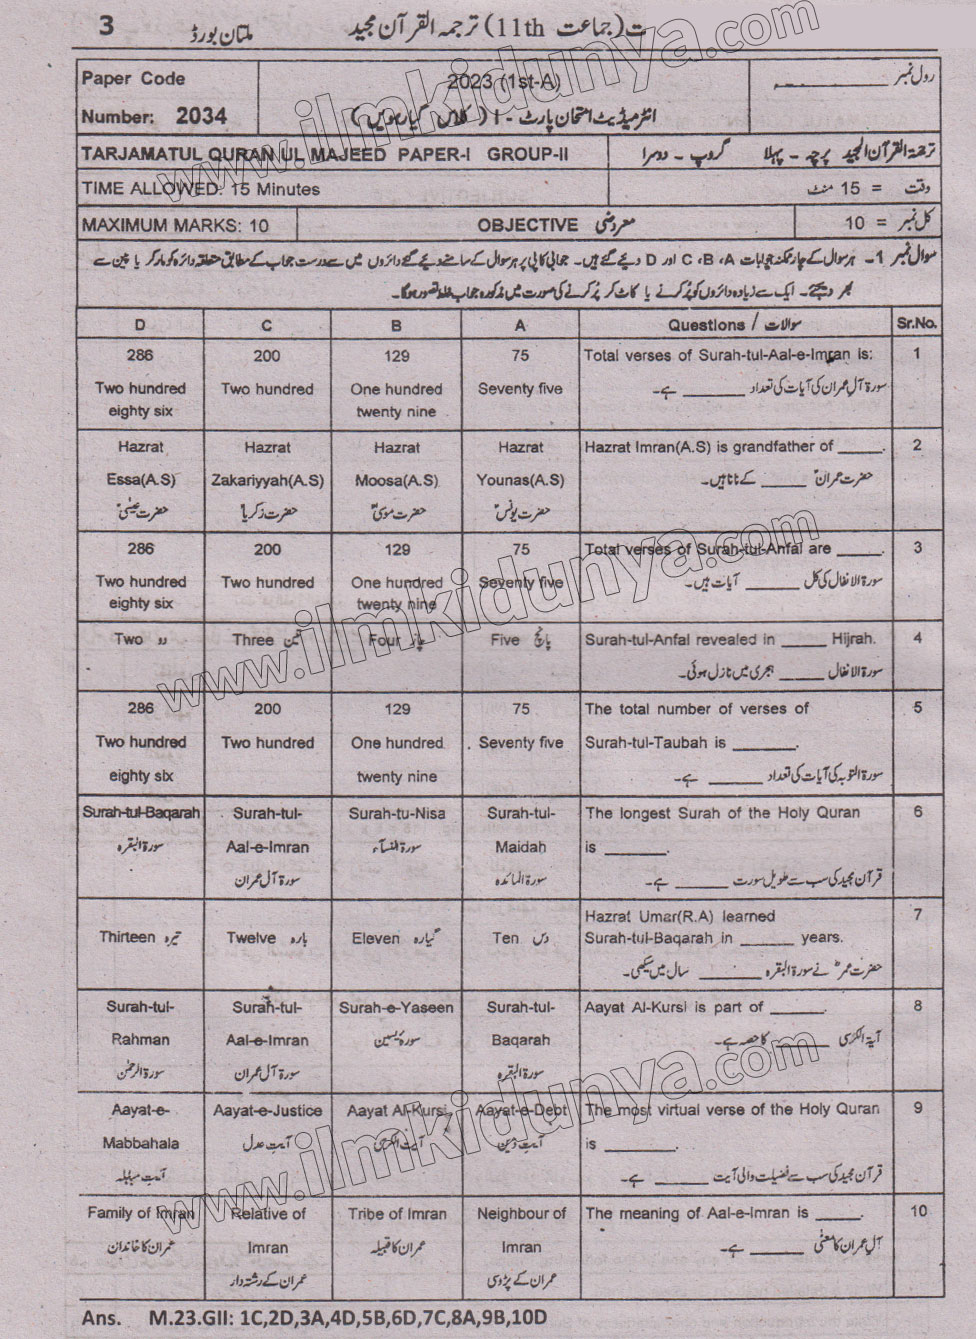 3 ملتان بورڈ ت (جماعت 11th) ترجمہ القرآن مجید
Paper Code
Number: 2034
2023 (1st-A)
انٹرمیڈیٹ امتحان پارٹ - I ( کلاس گیارہویں )
رول نمبر ____________
TARJAMATUL QURAN UL MAJEED PAPER-I GROUP-II
ترجمۃ القرآن المجید پرچہ - پہلا گروپ - دوسرا
TIME ALLOWED: 15 Minutes
وقت = 15 منٹ
MAXIMUM MARKS: 10
OBJECTIVE معروضی
کل نمبر = 10
سوال نمبر 1- ہر سوال کے چار ممکنہ جوابات A، B، C اور D دیئے گئے ہیں۔ جوابی کاپی پر ہر سوال کے سامنے دیئے گئے دائروں میں سے درست جواب کے مطابق متعلقہ دائرہ کو مارکر یا پین سے
بھر دیجئے۔ ایک سے زیادہ دائروں کو پُر کرنے یا کاٹ کر پُر کرنے کی صورت میں مذکورہ جواب غلط تصور ہوگا۔
D C B A Questions / سوالات Sr.No.
286 200 129 75 Total verses of Surah-tul-Aal-e-Imran is: 1
Two hundred Two hundred One hundred Seventy five سورۃ آل عمران کی آیات کی تعداد ______ ہے۔
eighty six twenty nine
Hazrat Hazrat Hazrat Hazrat Hazrat Imran(A.S) is grandfather of _____. 2
Essa(A.S) Zakariyyah(A.S) Moosa(A.S) Younas(A.S) حضرت عمرانؑ _____ کے نانا ہیں۔
حضرت عیسیٰؑ حضرت زکریاؑ حضرت موسیٰؑ حضرت یونسؑ
286 200 129 75 Total verses of Surah-tul-Anfal are _____. 3
Two hundred Two hundred One hundred Seventy five سورۃ الانفال کی کل _____ آیات ہیں۔
eighty six twenty nine
Two دو Three تین Four چار Five پانچ Surah-tul-Anfal revealed in _____ Hijrah. 4
سورۃ الانفال _____ ہجری میں نازل ہوئی۔
286 200 129 75 The total number of verses of 5
Two hundred Two hundred One hundred Seventy five Surah-tul-Taubah is _______.
eighty six twenty nine سورۃ التوبہ کی آیات کی تعداد ______ ہے۔
Surah-tul-Baqarah Surah-tul- Surah-tu-Nisa Surah-tul- The longest Surah of the Holy Quran 6
سورۃ البقرہ Aal-e-Imran سورۃ النسآء Maidah is _______.
سورۃ آل عمران سورۃ المائدہ قرآن مجید کی سب سے طویل سورت ______ ہے۔
Hazrat Umar(R.A) learned 7
Thirteen تیرہ Twelve بارہ Eleven گیارہ Ten دس Surah-tul-Baqarah in ______ years.
حضرت عمرؓ نے سورۃ البقرہ _______ سال میں سیکھی۔
Surah-tul- Surah-tul- Surah-e-Yaseen Surah-tul- Aayat Al-Kursi is part of ______. 8
Rahman Aal-e-Imran سورۃ یٰسین Baqarah آیۃ الکرسی ______ کا حصہ ہے۔
سورۃ الرحمٰن سورۃ آل عمران سورۃ البقرہ
Aayat-e- Aayat-e-Justice Aayat Al-Kursi Aayat-e-Debt The most virtual verse of the Holy Quran 9
Mabbahala آیت عدل آیت الکرسی آیت دَین is ________.
آیت مباہلہ قرآن مجید کی سب سے فضیلت والی آیت ______ ہے۔
Family of Imran Relative of Tribe of Imran Neighbour of The meaning of Aal-e-Imran is _____. 10
عمران کا خاندان Imran عمران کا قبیلہ Imran آل عمران کا معنٰی ______ ہے۔
عمران کے رشتہ دار عمران کے پڑوسی
Ans. M.23.GII: 1C,2D,3A,4D,5B,6D,7C,8A,9B,10D
www.ilmkidunya.com
www.ilmkidunya.com
www.ilmkidunya.com